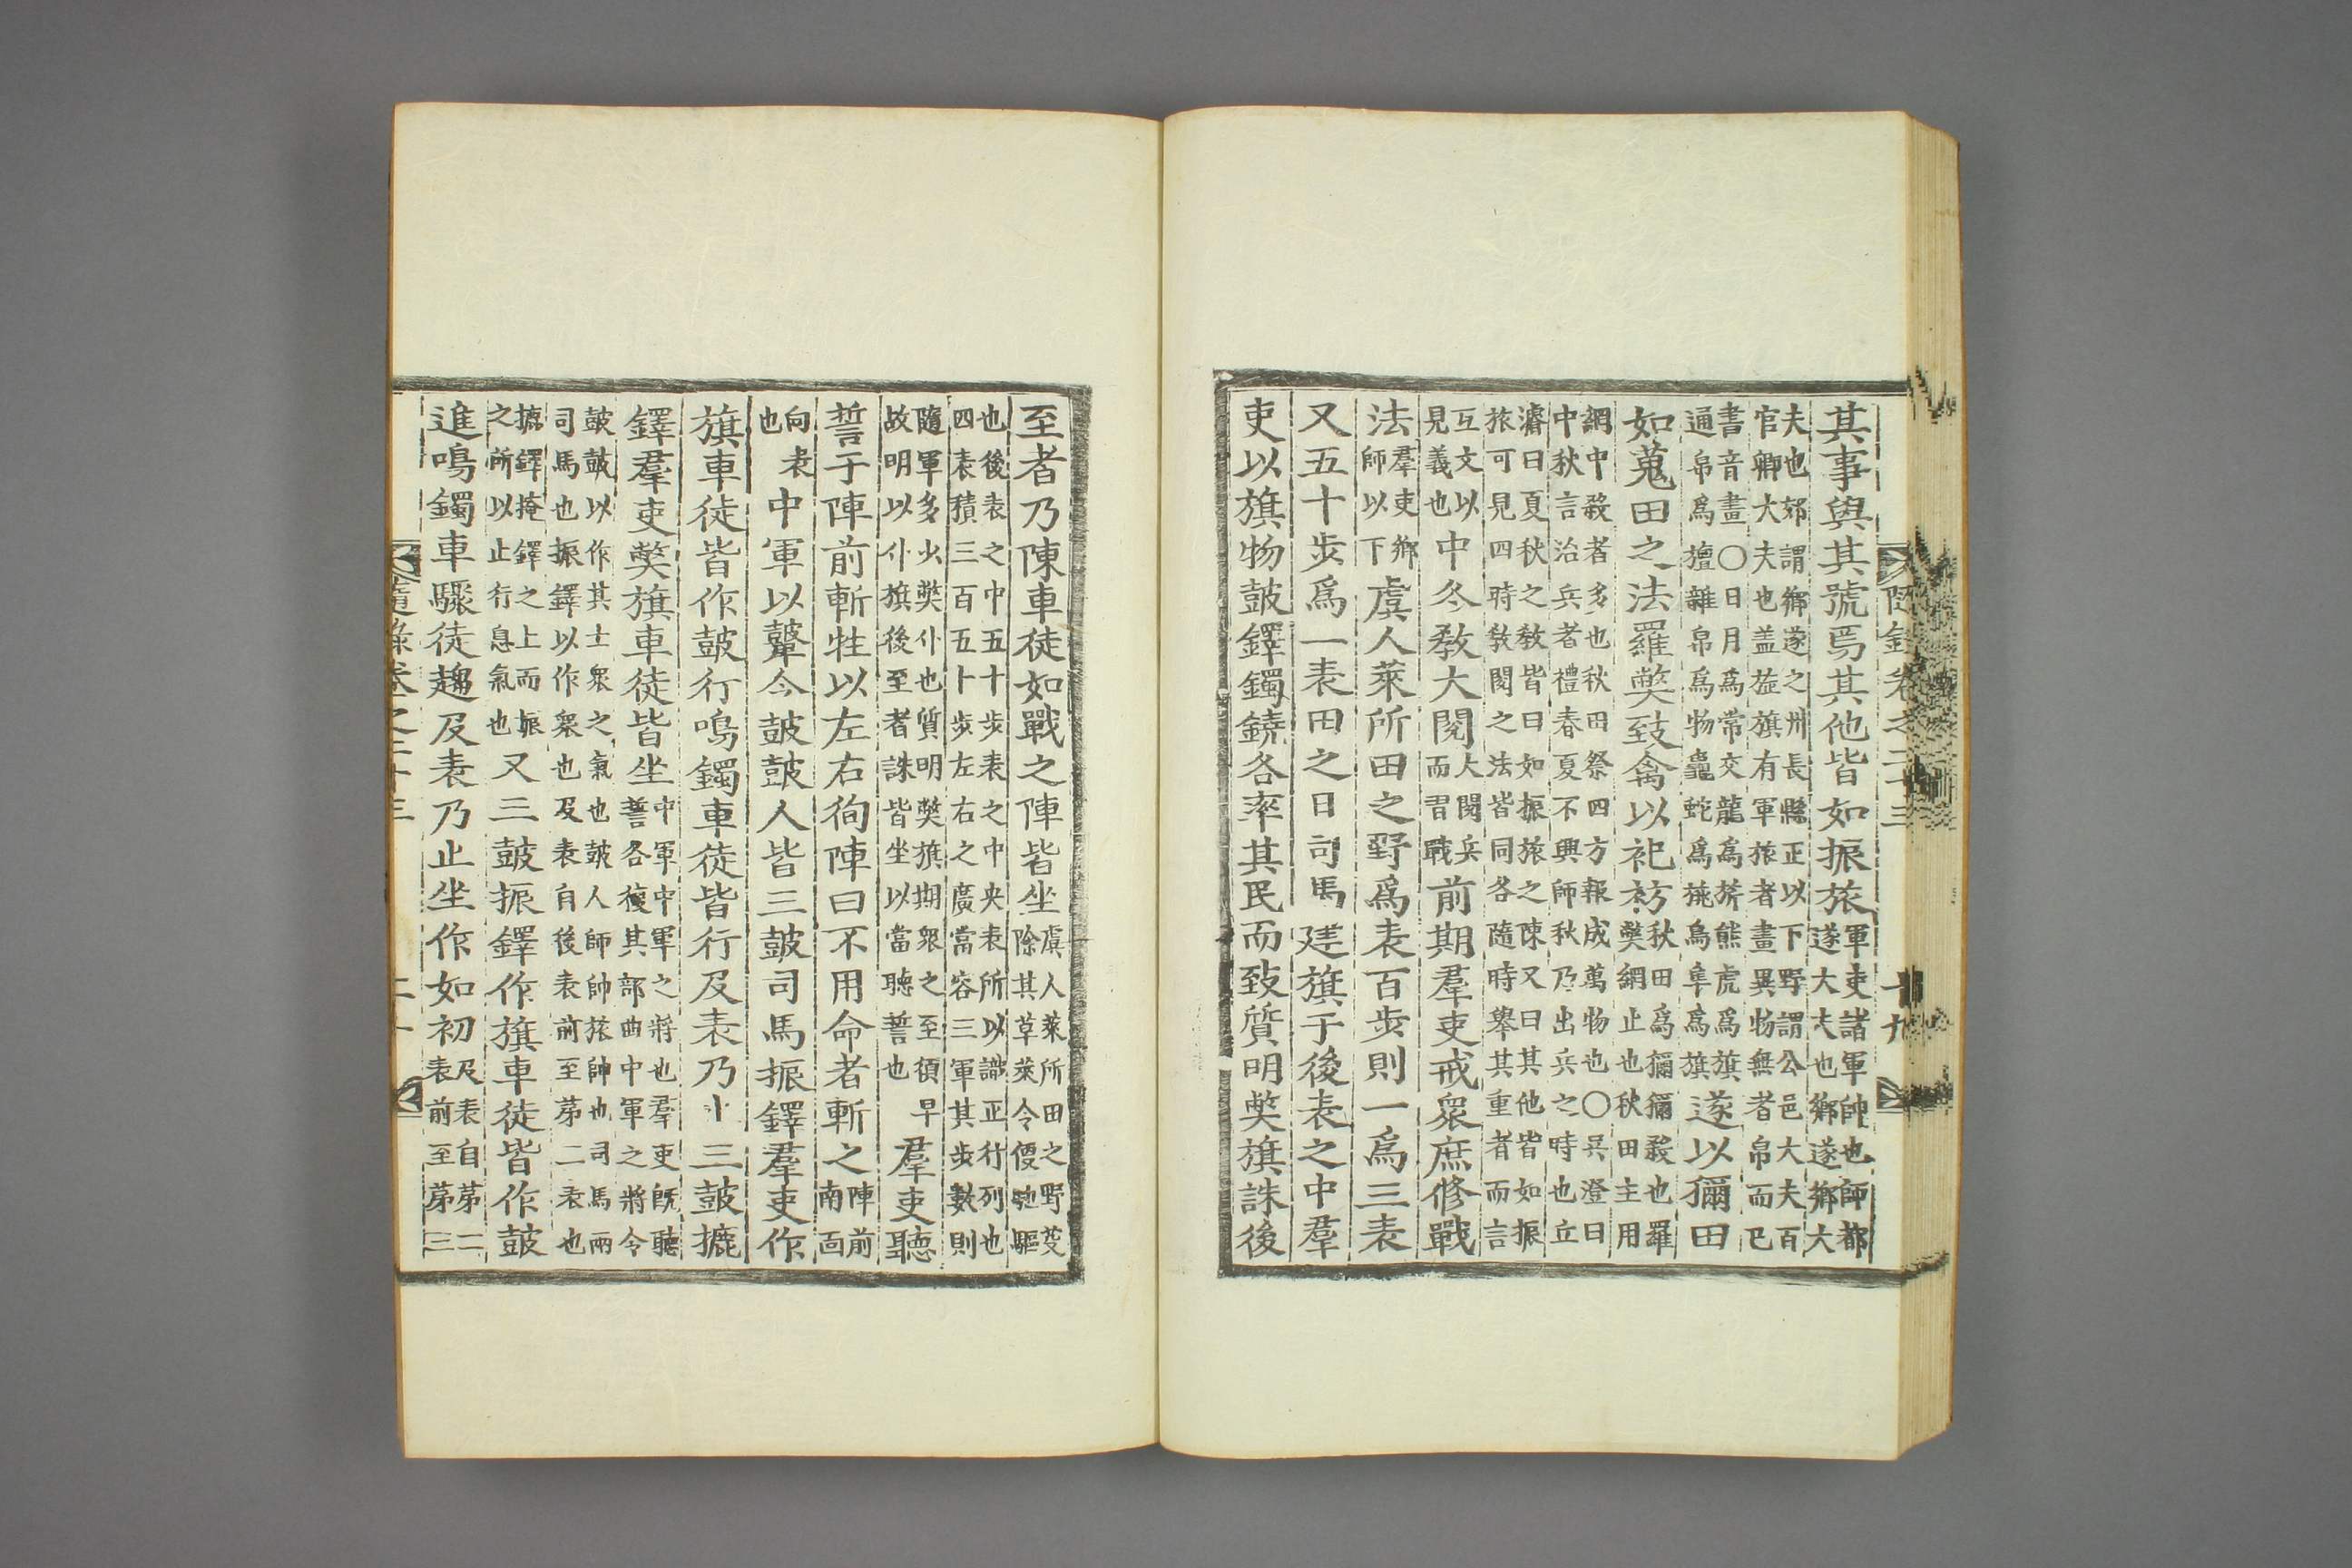 隨錄卷之二十三 十九
其事與其號焉其他皆如振旅軍吏諸軍帥也師都遂大夫也鄕遂鄕大
夫也郊謂鄕遂之州長縣正以下野謂公邑大夫百官卿大夫也盖旌旗有軍旅者畫異物無者帛而已
書音畫○日月爲常交龍爲旂熊虎爲旗通帛爲旜雜帛爲物龜蛇爲旐鳥隼爲旟遂以獮田
如蒐田之法羅獘致禽以祀祊秋田爲獮獮殺也羅獘網止也秋田主用
網中殺者多也秋田祭四方報成萬物也○吳澄曰中秋言治兵者禮春夏不興師秋乃出兵之時也丘
濬曰夏秋之敎皆曰如振旅之陳又曰其他皆如振旅可見四時敎閱之法皆同各隨時擧其重者而言
互文以見義也中冬敎大閱大閱兵而習戰前期羣吏戒衆庶修戰
法羣吏鄕師以下虞人萊所田之野爲表百步則一爲三表
又五十步爲一表田之日司馬建旗于後表之中羣
吏以旗物鼓鐸鐲鐃各率其民而致質明獘旗誅後
至者乃陳車徒如戰之陣皆坐虞人萊所田之野芟除其草萊令便馳驅
也後表之中五十步表之中央表所以識正行列也四表積三百五十步左右之廣當容三軍其步數則
隨軍多少獘仆也質明獘旗期衆之至須早故明以仆旗後至者誅皆坐以當聽誓也羣吏聽
誓于陣前斬牲以左右徇陣曰不用命者斬之陣前南面
向表也中軍以鼙令鼓鼓人皆三鼓司馬振鐸羣吏作
旗車徒皆作鼓行鳴鐲車徒皆行及表乃止三鼓摝
鐸羣吏獘旗車徒皆坐中軍中軍之將也羣吏旣聽誓各複其部曲中軍之將令
鼓鼓以作其士衆之氣也鼓人師帥旅帥也司馬兩司馬也振鐸以作衆也及表自後表前至第二表也
摝鐸掩鐸之上而振之所以止行息氣也又三鼓振鐸作旗車徒皆作鼓
進鳴鐲車驟徒趨及表乃止坐作如初及表自第二表前至第三
隨錄卷之二十三 二十